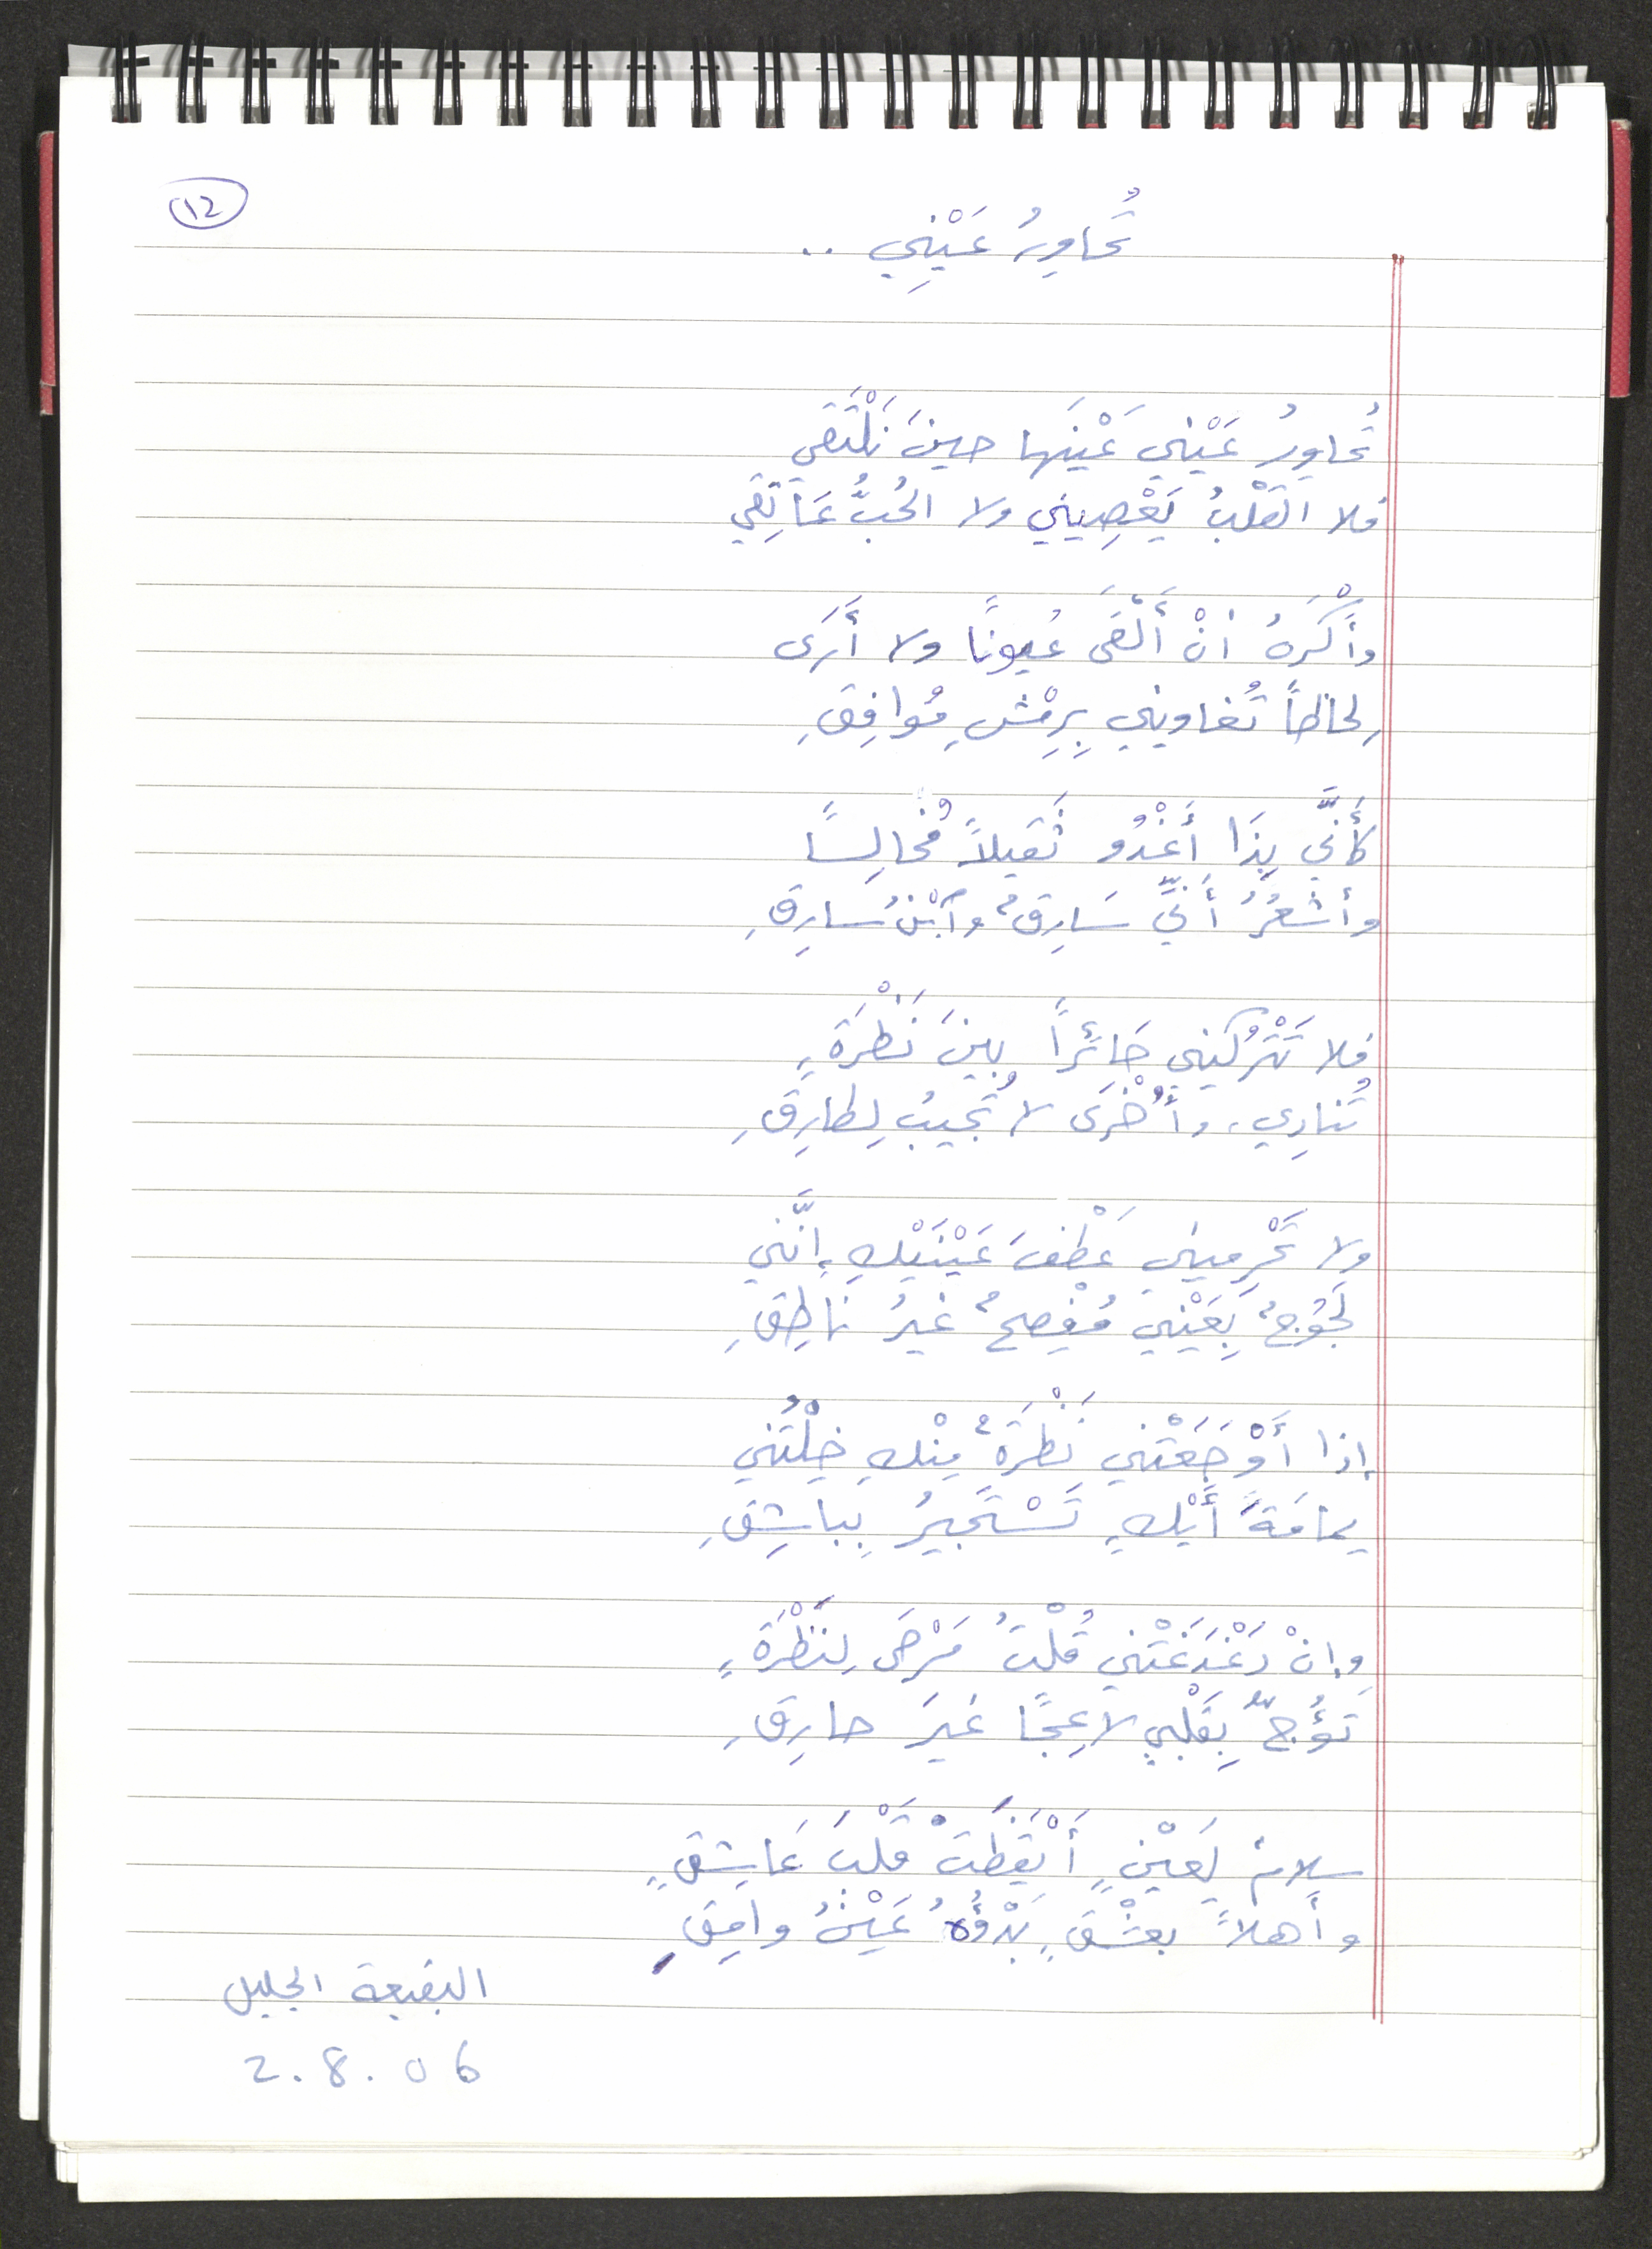 12
تُحاوِرُ عَيْنِي ..
تُحاوِرُ عَيْنِي عَيْنَها حينَ نَلْتَقي
فلا القَلْبُ يَعْصِيني ولا الحُبُّ عَاتِقي
وأَكْرَهُ أنْ أَلْقَى عُيونًا ولا أَرَى
لِحَاظاً تُغاويني بِرِمْشٍ مُوافِقِ
كأَنَّي بِذَا أَغْدُو ثَقيلاً مُخالِسًا
وأشعُرُ أَنِّي سَارِقٌ وآبْنُ سارِقِ
فلا تَتْرُكيني حَائرًا بينَ نَظْرَةٍ
تُنادِي، وأُخْرَى لا تُجيبُ لِطارِقِ
ولا تَحْرِميني عَطْفَ عَيْنَيْكِ إنَّني
لَجُوجٌ بِعَيْنِي مُفْصِحٌ غيرُ نَاطِقِ
إذا أَوْجَعَتْني نَظْرَةٌ مِنْكِ خِلْتُني
يمامَةَ أَيْكٍ تَسْتَجيرُ بِباشِقِ
وإنْ دَغْدَغَتْني قُلْتُ مَرْحَى لِنَظْرَةٍ
تَؤُجُّ بِقَلْبي لاعِجًا غيرَ حارِقِ
سلامٌ لِعَيْنٍ أَيْقَظَتْ قَلْبَ عَاشِقٍ
وأَهلاً بعشْقٍ بَدْؤُهُ عَيْنُ وامِقِ
البقيعة الجليل
2.8.06